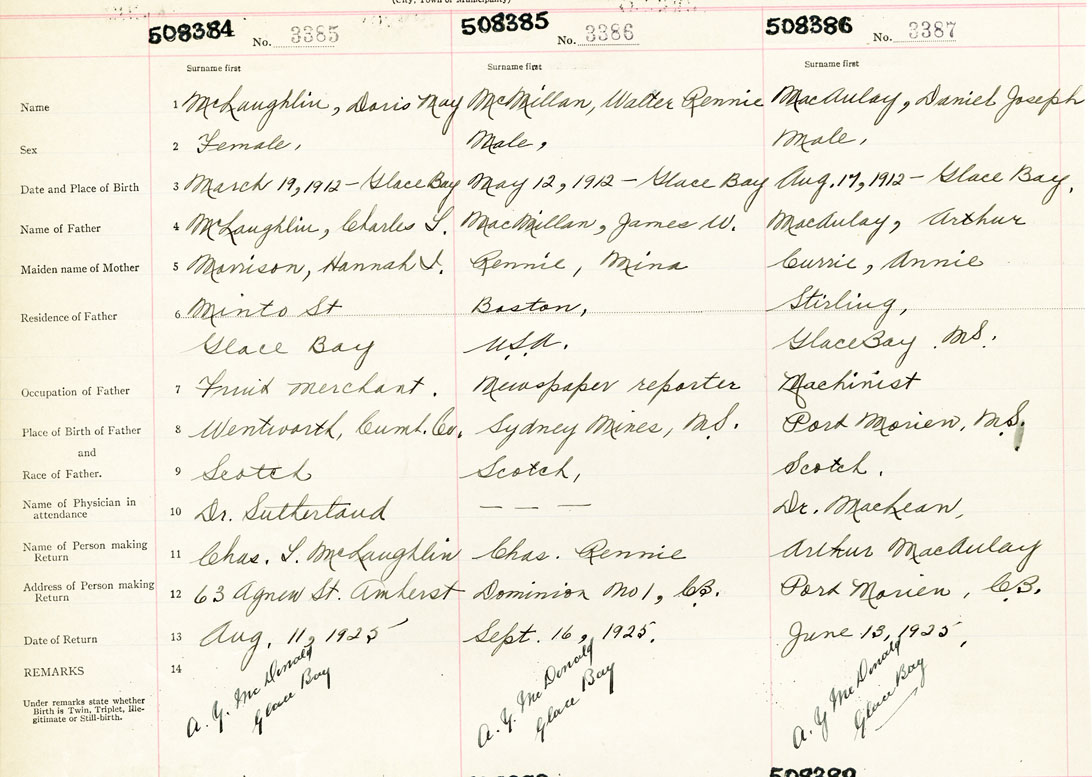 (City, Town or Municipality)
508384 No. 3385 508385 No. 3386 508386 No. 3387
Surname first Surname first Surname first
Name 1 McLaughlin, Doris May McMillan, Walter Rennie MacAulay, Daniel Joseph
Sex 2 Female, Male, Male,
Date and Place of Birth 3 March 19, 1912 – Glace Bay May 12, 1912 – Glace Bay Aug. 17, 1912 – Glace Bay,
Name of Father 4 McLaughlin, Charles S. MacMillan, James W. MacAulay, Arthur
Maiden name of Mother 5 Morrison, Hannah J. Rennie, Mina Currie, Annie
Residence of Father 6 Minto St Boston, Stirling,
Glace Bay U.S.A. Glace Bay N.S.
Occupation of Father 7 Fruit merchant. Newspaper reporter Machinist
Place of Birth of Father 8 Wentworth, Cumb. Co. Sydney Mines, N.S. Port Morien, N.S.
and
Race of Father. 9 Scotch Scotch, Scotch.
Name of Physician in attendance 10 Dr. Sutherland — — — Dr. MacLean,
Name of Person making Return 11 Chas. S. McLaughlin Chas. Rennie Arthur MacAulay
Address of Person making Return 12 63 Agnew St. Amherst Dominion No 1, C.B. Port Morien, C.B.
Date of Return 13 Aug. 11, 1925 Sept. 16, 1925. June 13, 1925,
REMARKS 14 A. Y. McDonald A. Y. McDonald A. Y McDonald
Glace Bay Glace Bay Glace Bay
Under remarks state whether
Birth is Twin, Triplet, Ille-
gitimate or Still-birth.